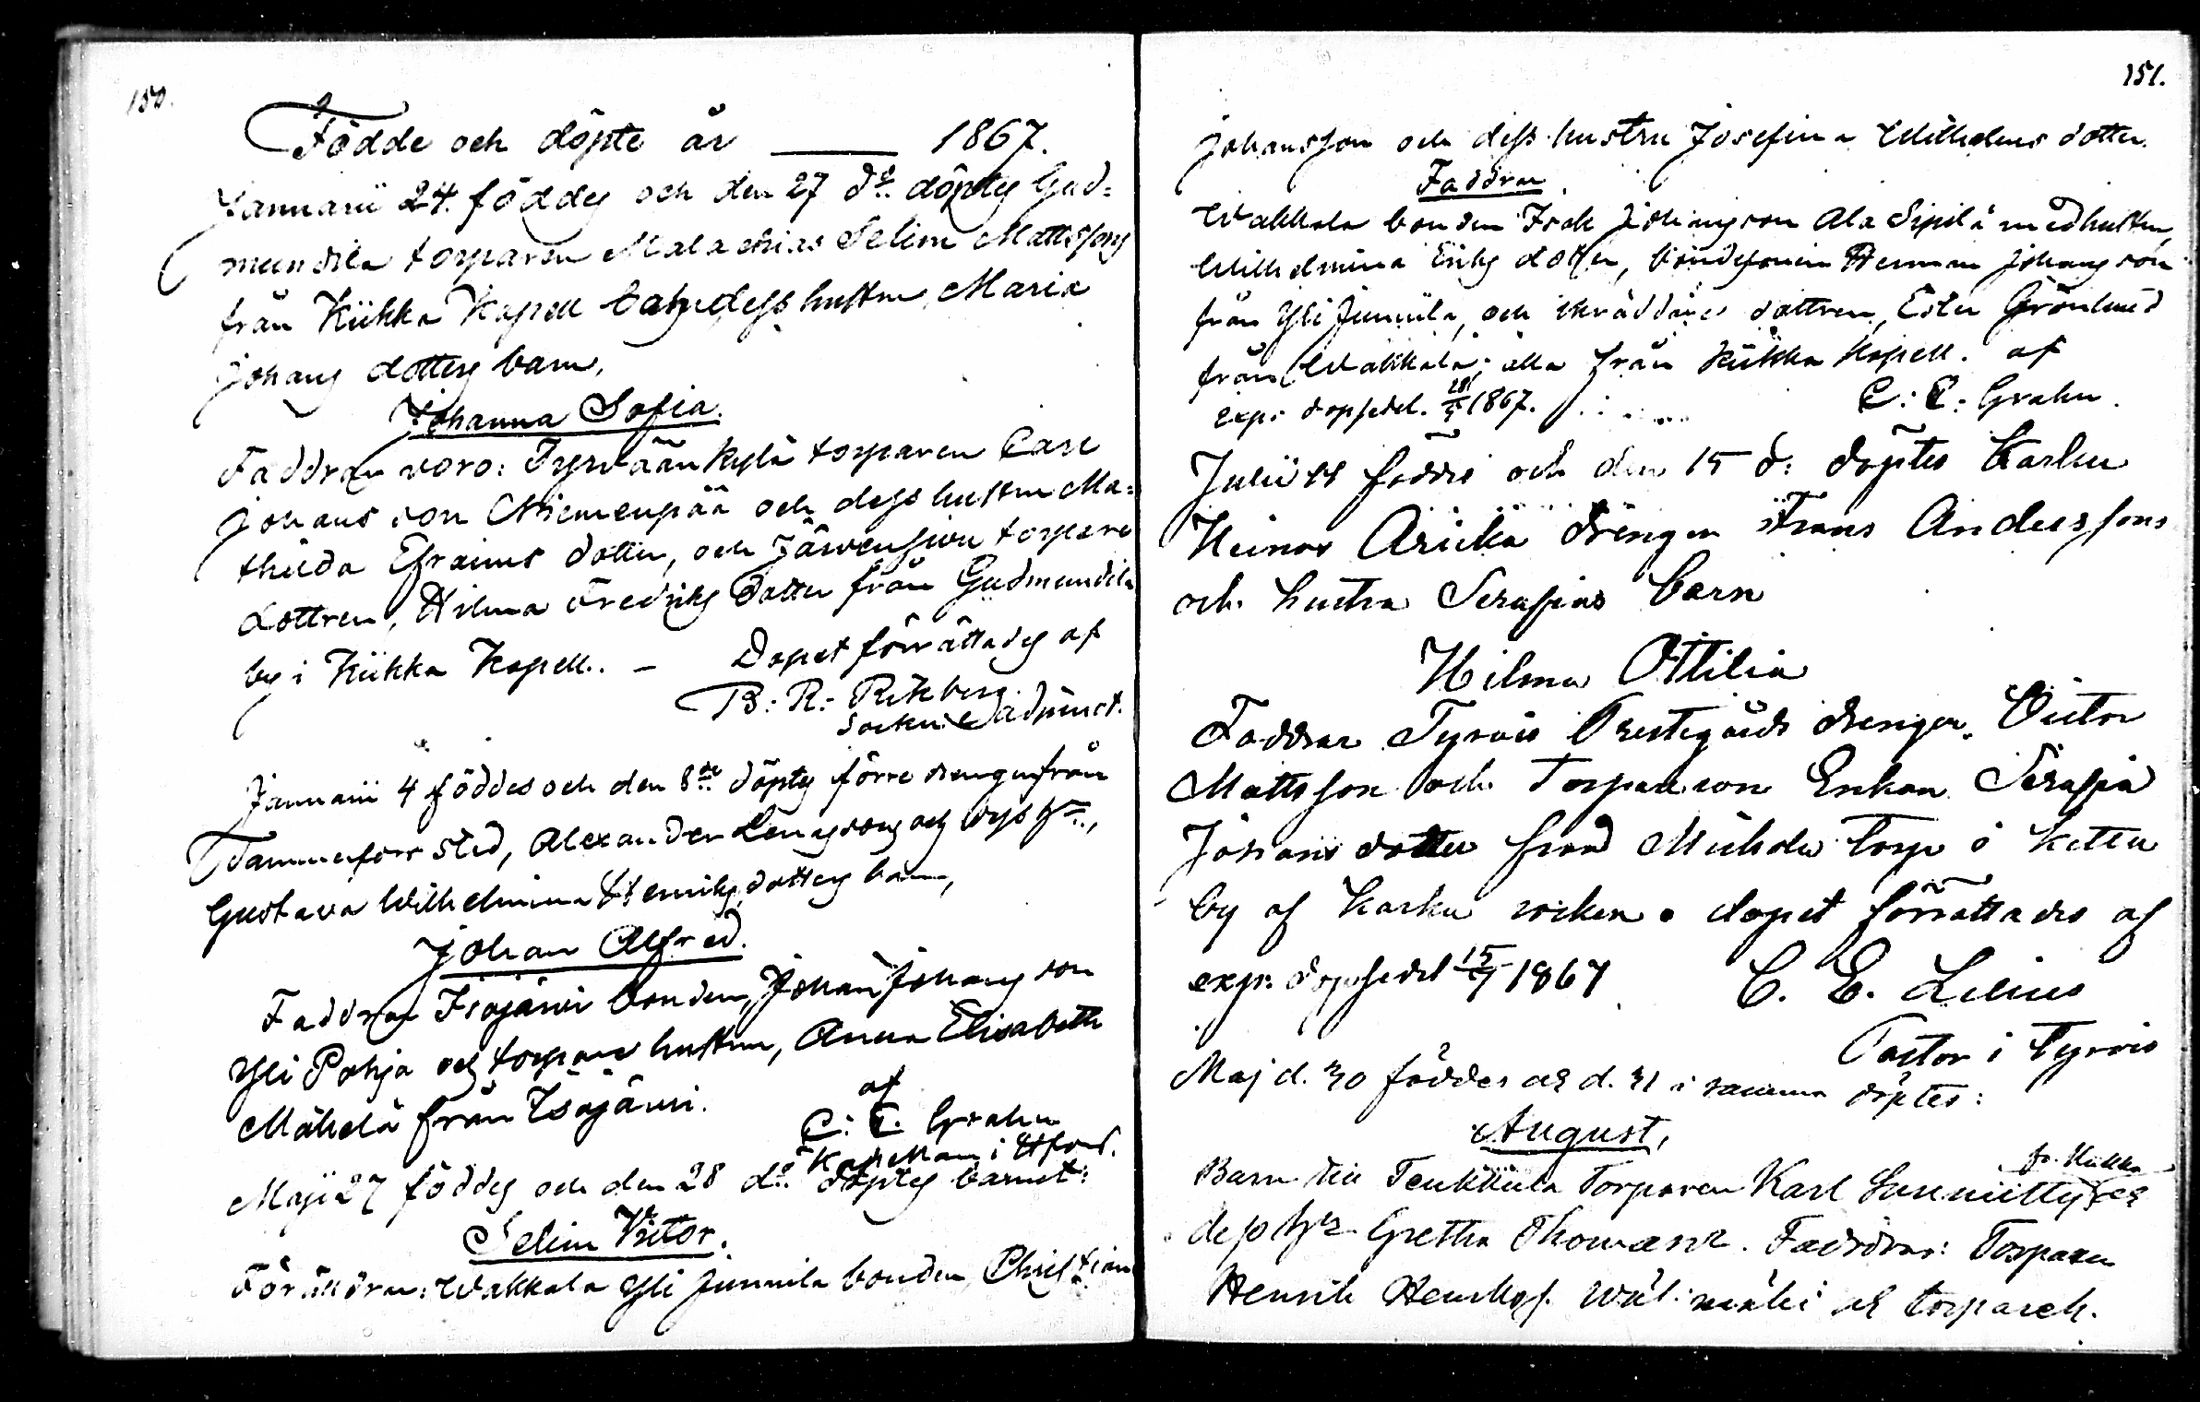 150.
Födde och döpte år — 1867.
Januarii 24. föddes och den 27 d:o döptes Gud=
mundila torparen Malachias Selim Mattssons
från Kiikka Kapell dess hustru, Maria
Johans dotters barn,
Johanna Sofia.
Faddrar voro: Tyrvään kylä torparen Carl
Johans son Niemenpää och dess hustru Ma=
thilda Efraims dotter, och Järvensivu torpare
dottren, Hilma Fredriks dotter från Gudmundila
by i Kiikka Kapell. — Dopet förrättades af
B: R: Rikberg.
Socken adjunct.
Januarii 4 föddes och den 8:de döptes förre drengen från
Tammerfors stad, Alexander och dess h:u,
Gustava Wilhelmina Henriks dotters barn,
Johan Alfred.
Faddrar Isojärvi bonden, Johan Johans son
Yli Pohja och torpare hustrun, Anna Elisabeth
Mäkelä från Isojärvi.
af
C: E. Grahn
Kapellan i
Maji 27 föddes och den 28 d:o döptes barnet:
Selim Victor.
Föräldrar: Wakkala Yli Junnila bonden Christian
151.
Johansson och dess hustru Josefina Wilhelms dotter.
Faddrar.
Wakkala bonden Isak Johansson Ala Sipilä med hustru
Wilhelmina Eriks dotter, bondesonen Herman Johans son
från Yli Junnila, och skräddare dottren, Ester Grönlund
från Wakkala; alla från Kiikka Kapell. af
exp: dopsedel. 28/5 1867. C: E: Grahn.
Julii 11 föddes och den 15 d: döptes Karku
Heinoo Drengen Frans Anderssons
och hustru Serafias barn
Hilma Ottilia
Faddrar Tyrvis Prestegårds drengen, Victor
Mattsson och Enkan Serafia
Johans dotter från Torp i
by af Karku socken. dopet förrättades af
exp: dopsedel 15/7 1867 C. E. Lilius
Pastor i Tyrvis
Maj d. 30 föddes och d. 31 i samma döptes:
August,
fr. Kiikka
Barn till Torparen Karl och
dess h:u Gretha Thomasd. Faddrar: Torparen
Henrik och torpareh.